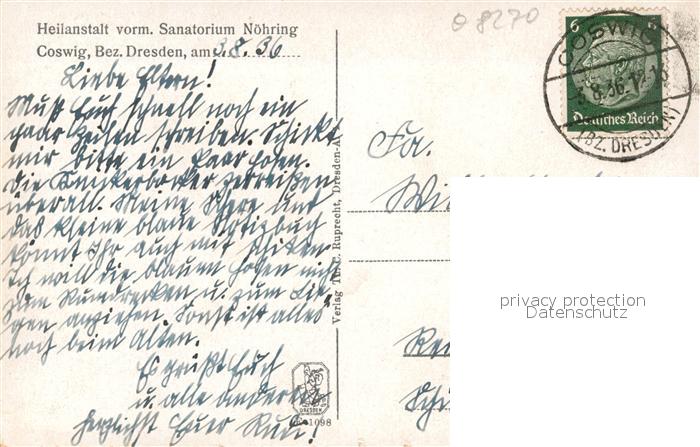 Heilanstalt vorm. Sanatorium Nöhring
Coswig, Bez. Dresden, am 3.8.36
Liebe Eltern!
Muß Euch schnell noch ein
paar Zeilen schreiben. Schickt
mir bitte ein paar Hosen.
Die Knickerbocker zerreißen
überall. Meine Schere und
das kleine blaue Notizbuch
könnt Ihr auch mit schicken.
Ich will die blauen Hosen nicht
zum Rumdrecken u. zum Lie-
gen anziehen. Sonst ist alles
noch beim Alten.
Es grüßt Euch
u. alle anderen
herzlichst Euer Rudi!
Verlag Th. C. Ruprecht, Dresden-A.
DRESDEN
1098
θ 8270
6 6
Deutsches Reich
COSWIG
3.8.36.12-18
(BZ. DRESDEN)
Fa.
privacy protection
Datenschutz